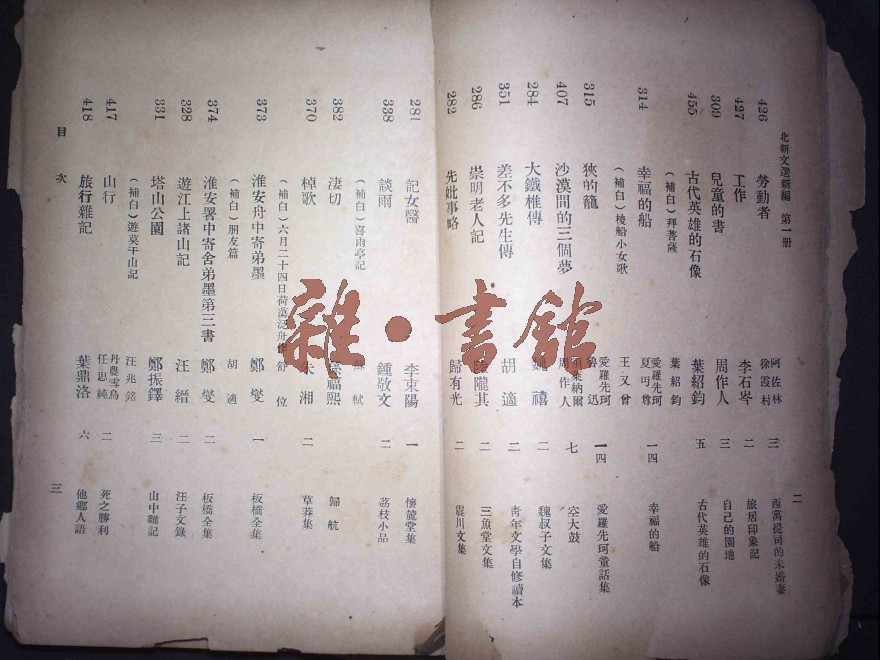 北新文選新編 第一册
二
426 勞動者 阿佐林 徐霞村 三 西萬提司的未婚妻
427 工作 李石岑 二 旅居印象記
309 兒童的書 周作人 三 自己的園地
455 古代英雄的石像 葉紹鈞 五 古代英雄的石像
(補白)拜菩薩 葉紹鈞
314 幸福的船 愛羅先珂 夏丏尊 一四 幸福的船
(補白)棱船小女歌 王又曾
315 狹的籠 愛羅先珂 魯迅 一四 愛羅先珂童話集
407 沙漠間的三個夢 須萊納爾 周作人 七 空大鼓
284 大鐵椎傳 魏禧 二 魏叔子文集
351 差不多先生傳 胡適 二 靑年文學自修讀本
286 崇明老人記 陸隴其 二 三魚堂文集
282 先妣事略 歸有光 二 震川文集
281 記女醫 李東陽 一 懷麓堂集
338 談雨 鍾敬文 二 荔枝小品
(補白)喜雨亭記 蘇軾
382 淒切 孫福熙 歸航
370 棹歌 朱湘 二 草莽集
(補白)六月二十四日荷蕩泛舟作 舒位
373 淮安舟中寄舍弟墨 鄭燮 一 板橋全集
(補白)朋友篇 胡適
374 淮安署中寄舍弟墨第三書 鄭燮 二 板橋全集
328 遊江上諸山記 汪縉 二 汪子文錄
331 塔山公園 鄭振鐸 三 山中雜記
(補白)遊莫干山記 汪兆銘
417 山行 丹農雪烏 任思純 二 死之勝利
418 旅行雜記 葉鼎洛 六 他鄉人語
目次
三
雜·書館